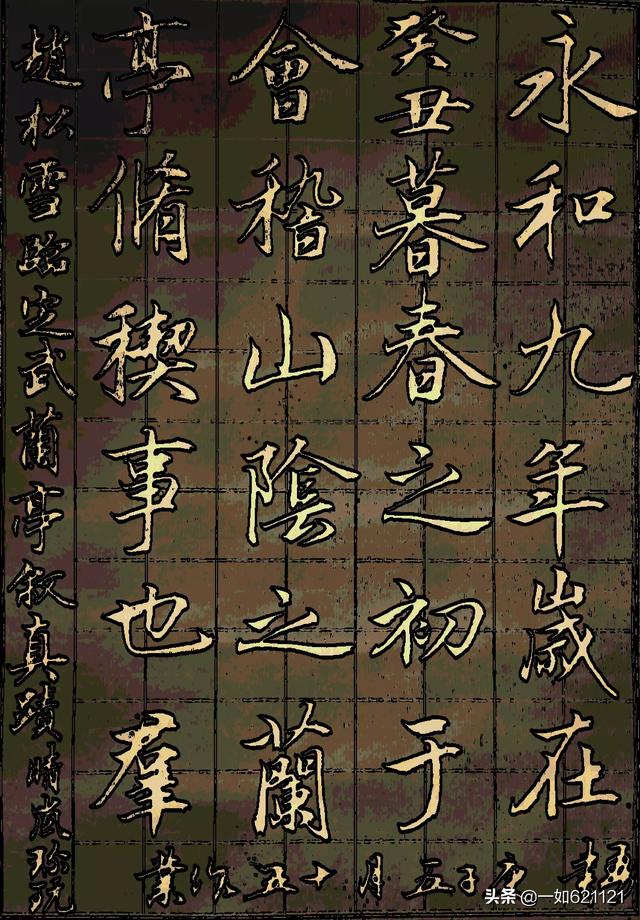 永和九年歲在
癸丑暮春之初于
會稽山陰之蘭
亭脩稧事也羣
趙松雪臨定武蘭亭叙真蹟晴嵐珍玩
子五月十五
头条 @一如621121